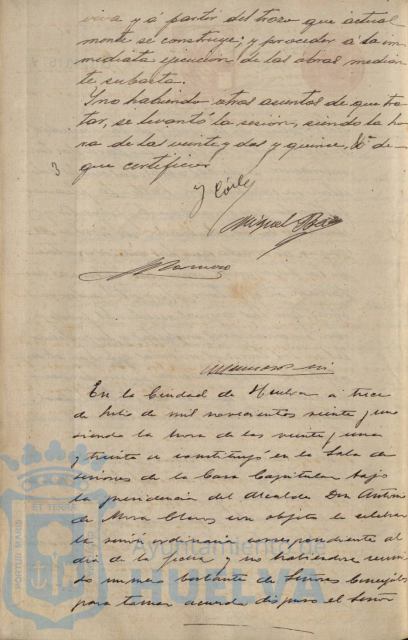 viva y á partir del trozo que actual
mente se construye; y proceder á la in
mediata ejecucion de las obras median
te subasta.
Y no habiendo otros asuntos de que tra
tar, se levantó la sesion, siendo la ho
ra de las veinte y dos y quince, de
que certifico.
3
Miguel
En la Ciudad de Huelva a trece
de Julio de mil novecientos veinte y uno
siendo la hora de las veinte y una
y treinta se constituyó en la Sala de
sesiones de la Casa Capitular bajo
la presidencia del Alcalde Don Antonio
de Mora Claros con objeto de celebrar
la sesión ordinaria correspondiente al
dia de la fecha y no habiendose reuni
do número bastante de Señores Concejales
para tomar acuerdo dispuso el Señor
PORTUS MARIS
ET TERRAE
Ayuntamiento de
HUELVA